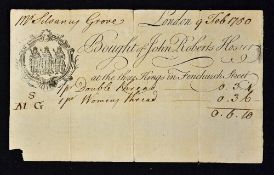 Mr Silvanus Grove London 9 Feb 1750
Bought of John Roberts Hosier
at the three Kings in Fenchurch Street
S 1 pr Double thread 0. 3. 4
M G 1 pr Womens thread 0. 3. 6
0. 6. 10